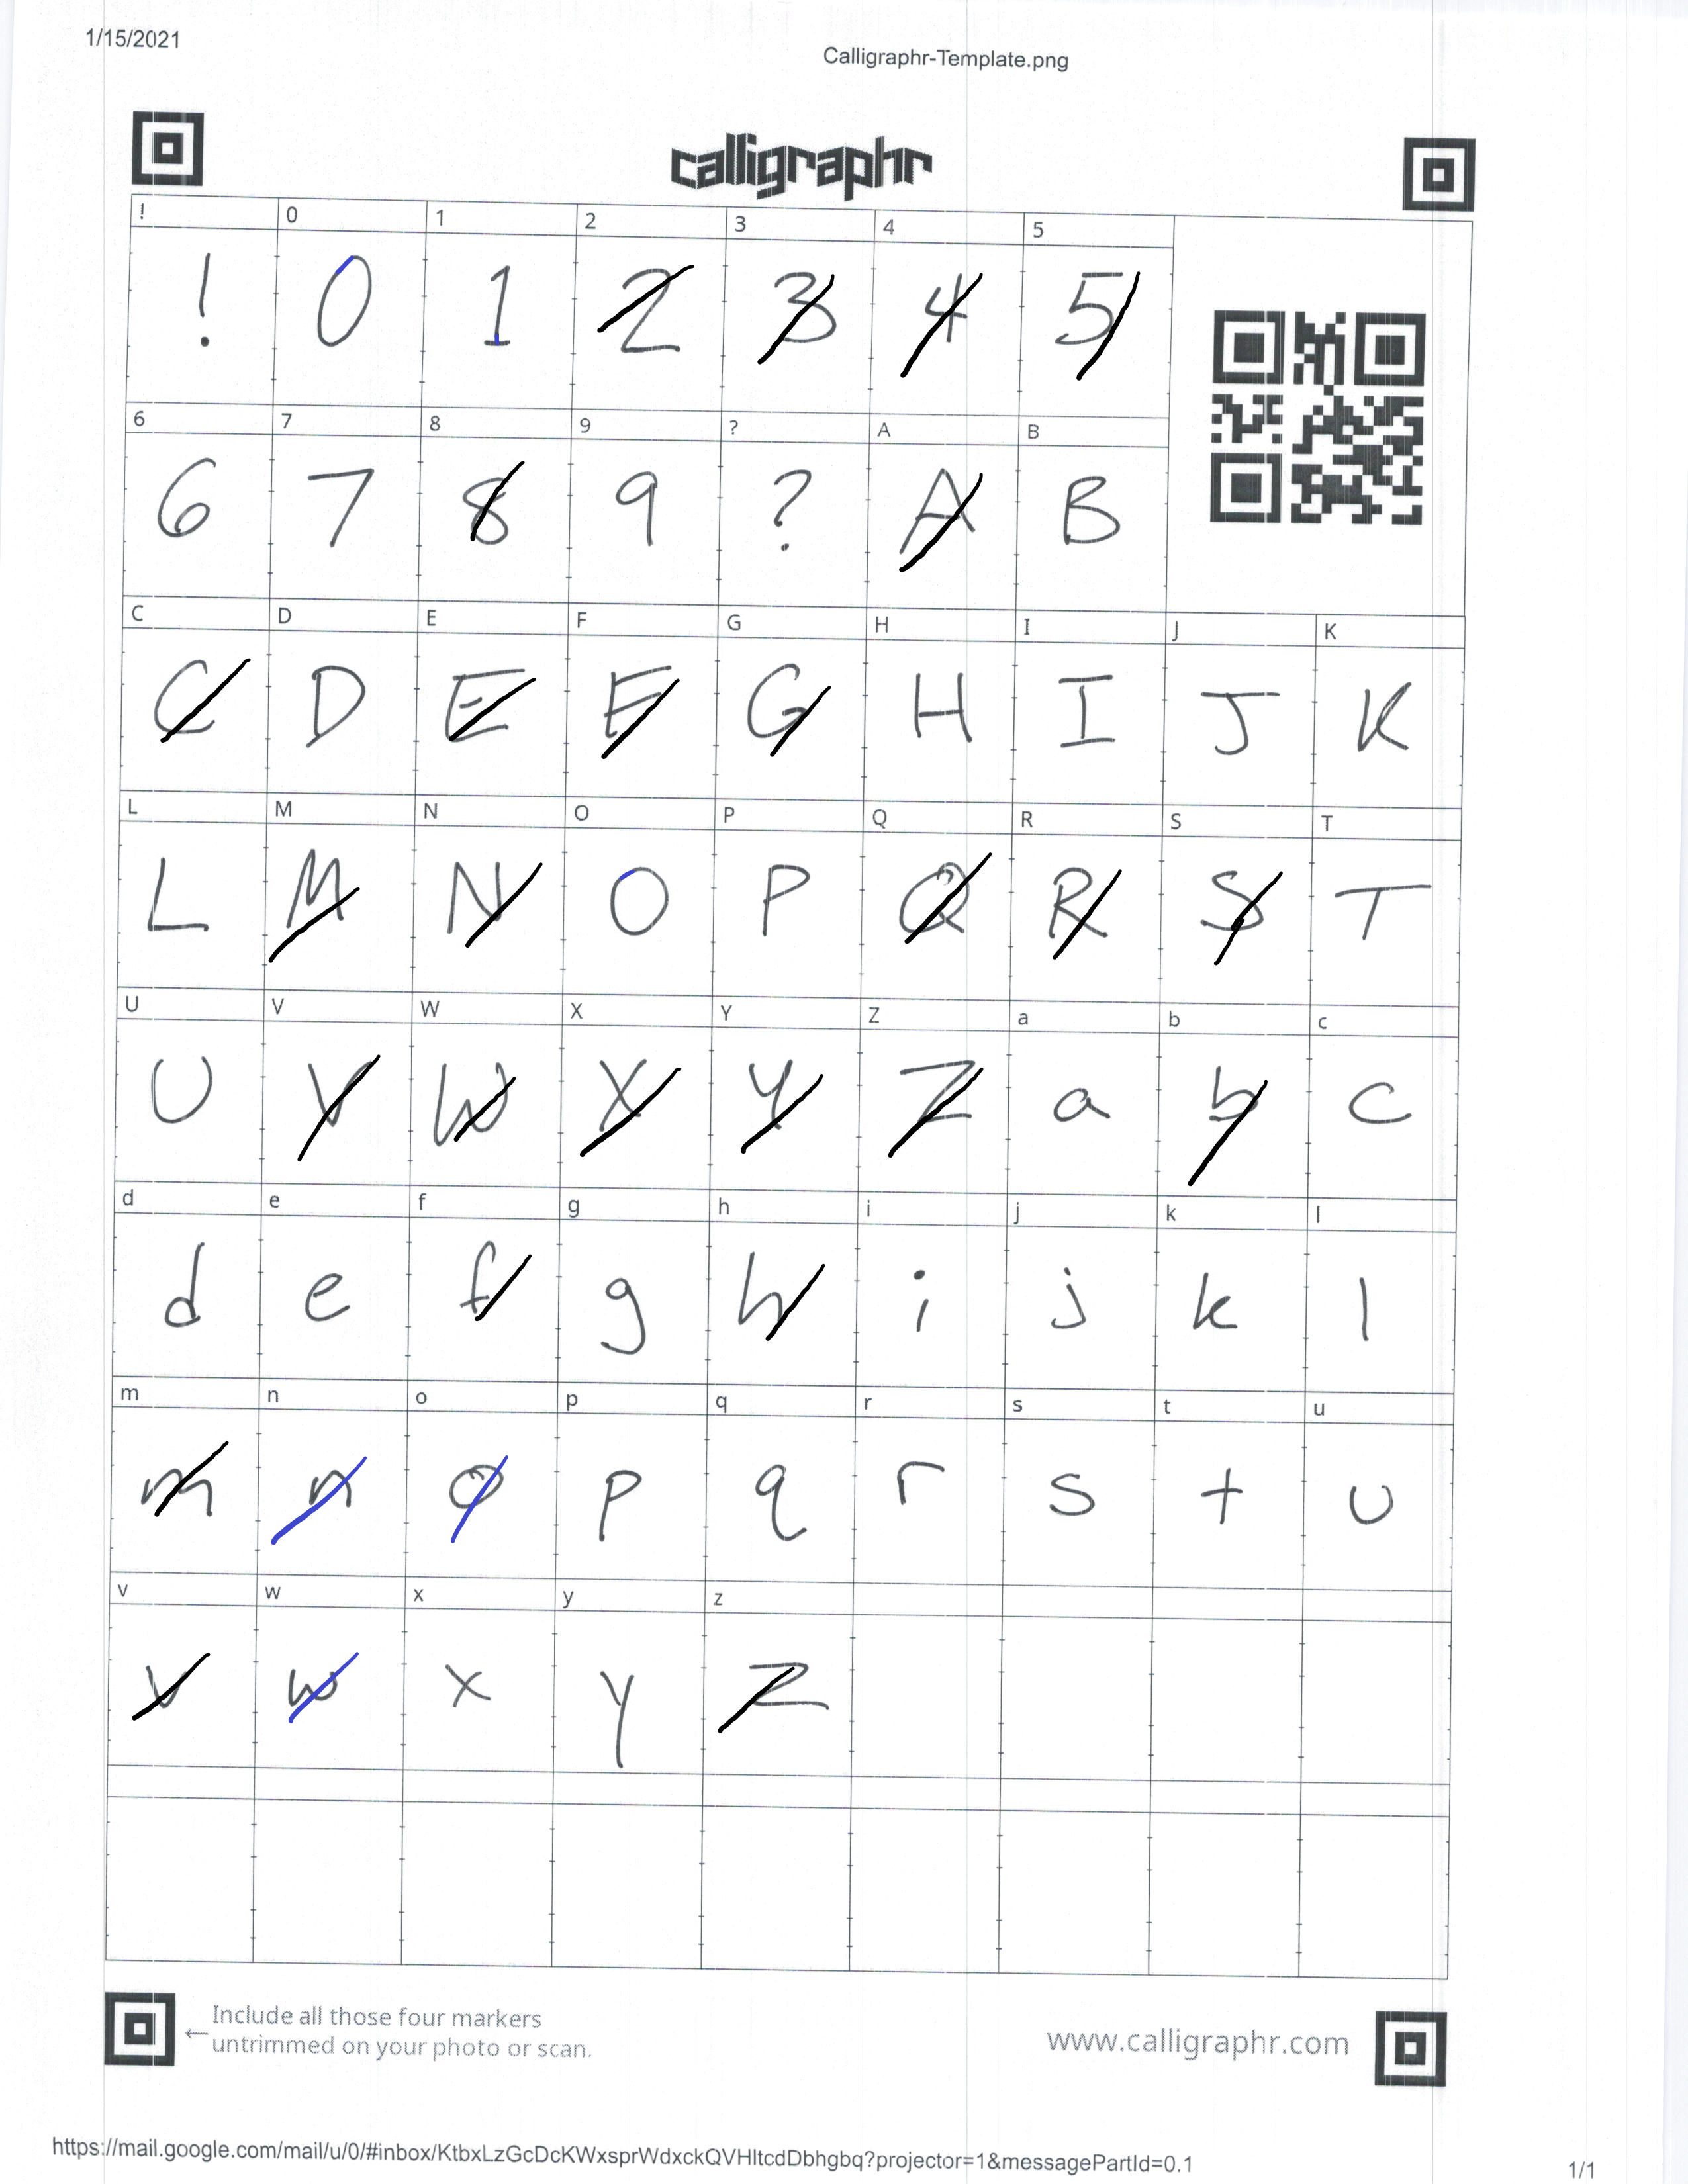 1/15/2021
Calligraphr-Template.png
calligraphr
! 0 1 2 3 4 5
! 0 1 2 3 4 5
6 7 8 9 ? A B
6 7 8 9 ? A B
C D E F G H I J K
C D E F G H I J K
L M N O P Q R S T
L M N O P Q R S T
U V W X Y Z a b c
U V W X Y Z a b c
d e f g h i j k l
d e f g h i j k l
m n o p q r s t u
m n o p q r s t u
v w x y z
v w x y z
← Include all those four markers
untrimmed on your photo or scan.
www.calligraphr.com
https://mail.google.com/mail/u/0/#inbox/KtbxLzGcDcKWxsprWdxckQVHltcdDbhgbq?projector=1&messagePartId=0.1
1/1